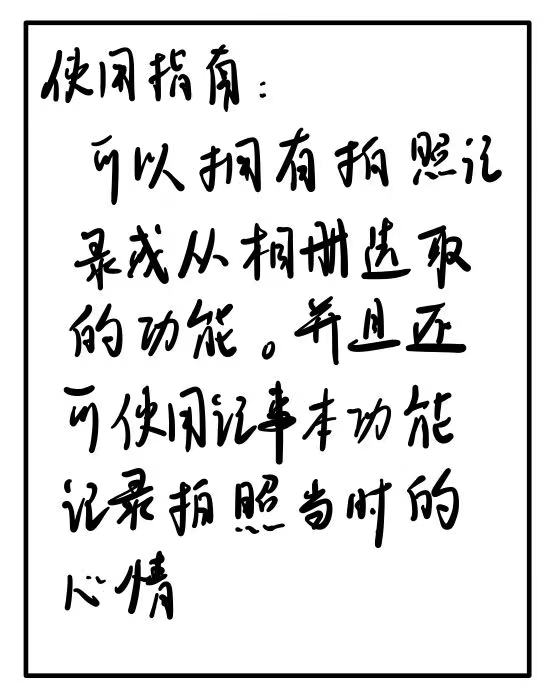 使用指南：
可以拥有拍照记
录或从相册选取
的功能。并且还
可使用记事本功能
记录拍照当时的
心情